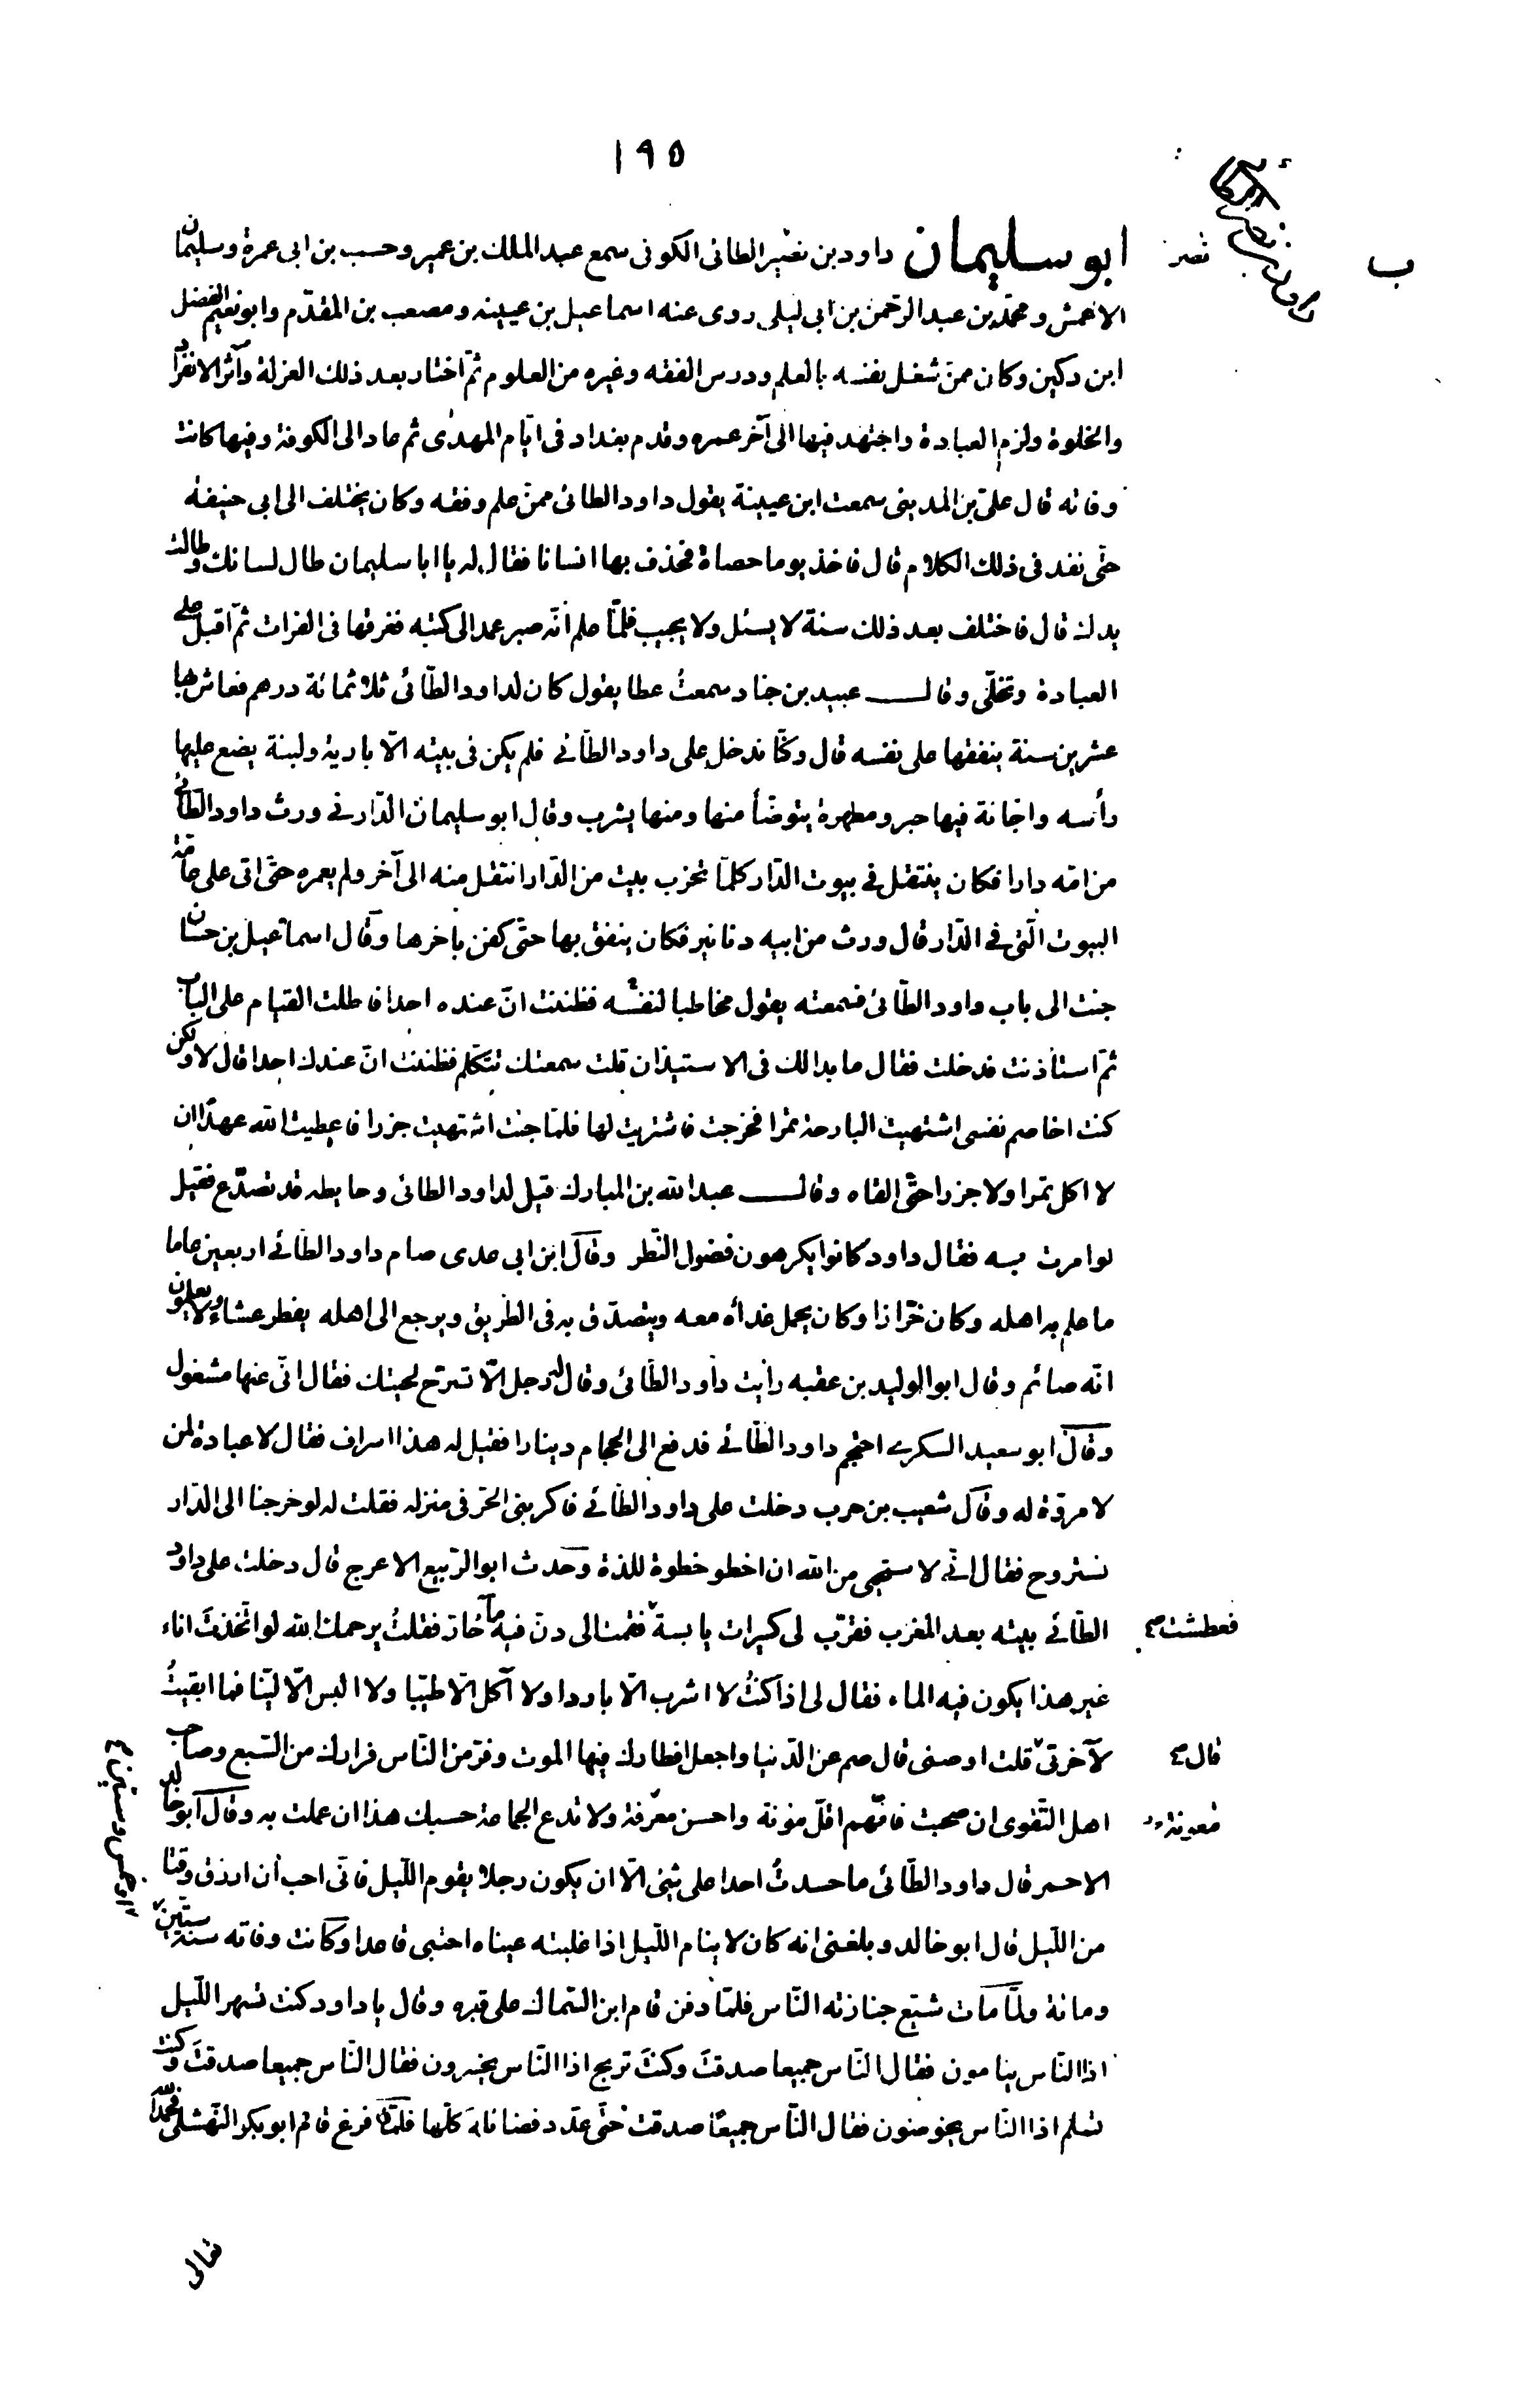 ١٩٥
داود بن نصير الطائى
ب
نصر
ابو سليمان داود بن نصير الطائى الكوفى سمع عبد الملك بن عمير وحبيب بن ابى عمرة وسليمان
الاعمش ومحمد بن عبد الرحمن بن ابى ليلى روى عنه اسماعيل بن عيينه ومصعب بن المقدّم وابو نعيم الفضل
ابن دكين وكان ممن شغل نفسه بالعلم ودرس الفقه وغيره من العلوم ثمّ اختار بعد ذلك العزلة وآثر الانفراد
والخلوة ولزم العبادة واجتهد فيها الى آخر عمره وقدم بغداد فى ايّام المهدى ثم عاد الى الكوفة وفيها كانت
وفاته قال علىّ بن المدينى سمعت ابن عيينة يقول داود الطائى ممن علم وفقه وكان يختلف الى ابى حنيفة
حتّى نفد فى ذلك الكلام قال فاخذ يوما حصاة فحذف بها انسانا فقال له يا ابا سليمان طال لسانك وطالت
يدك قال فاختلف بعد ذلك سنة لا يسئل ولا يجيب فلمّا علم انّه صبر عمد الى كتبه فغرقها فى الفرات ثمّ اقبل على
العبادة وتخلّى وقال عبيد بن جناد سمعتُ عطا يقول كان لداود الطّائى ثلاثمائة درهم فعاش بها
عشرين سنة ينفقها على نفسه قال وكنّا ندخل على داود الطّائى فلم يكن فى بيته الّا بارية ولبنة يضع عليها
رأسه واجّانة فيها حبر ومطهرة يتوضّأ منها ومنها يشرب وقال ابو سليمان الدّارنى ورث داود الطّائى
من امّه دارا فكان ينتقل فى بيوت الدّار كلّما تخرب بيت من الدّار انتقل منه الى آخر ولم يعمره حتّى اتى على عامّة
البيوت الّتى فى الدّار قال ورث من ابيه دنانير فكان ينفق بها حتّى كفن باخرها وقال اسماعيل بن حسّان
جئت الى باب داود الطّائى فسمعته يقول مخاطبا لنفسه فظننت انّ عنده احدا فاطلت القيام على الباب
ثمّ استأذنت فدخلت فقال ما بدا لك فى الاستيذان قلت سمعتك تتكلم فظننت انّ عندك احدا قال لا ولكن
كنت اخاصم نفسى اشتهيت البارحة تمرا فخرجت فاشتريت لها فلمّا جئت اشتهيت جزرا فاعطيت الله عهدًا ان
لا اكل تمرا ولا جزرا حتّى القاه وقال عبد الله بن المبارك قيل لداود الطائى وحايطه قد تصدّع فقيل
لو امرت به فقال داود كانوا يكرهون فضول النّظر وقال ابن ابى عدى صام داود الطّائى اربعين عاما
ما علم به اهله وكان خرّازا وكان يحمل غدأه معه ويتصدّق به فى الطّريق ويرجع الى اهله يفطر عشاء لا يعلمون
انّه صائم وقال ابو الوليد بن عقبه رأيت داود الطّائى وقال له رجل الّا تسرّح لحيتك فقال انّى عنها مشغول
وقال ابو سعيد السكرى احتجم داود الطّائى فدفع الى الحجام دينارا فقيل له هذا اسراف فقال لا عبادة لمن
لا مروّة له وقال شعيب بن حرب دخلت على داود الطّائى فاكربنى الحرّ فى منزله فقلت له لو خرجنا الى الدّار
نستروح فقال انّى لاستحيى من الله ان اخطو خطوة للذة وحدث ابو الرّبيع الاعرج قال دخلت على داود
الطّائى بيته بعد المغرب فقرّب لى كسيرات يابسة فقمت الى دنّ فيه ماء حارّ فقلتُ يرحمك الله لو اتّخذتَ اناء
فعطشت صح
غير هذا يكون فيه الماء فقال لى اذا كنتُ لا اشرب الّا باردا ولا آكل الّا طيّبا ولا البس الّا ليّنا فما ابقيتُ
لآخرتى قلت اوصنى قال صم عن الدّنيا واجعل افطارك فيها الموت وفرّ من النّاس فرارك من السّبع وصاحب
قال صح
اهل التّقوى ان صحبت فانّهم اقلّ مؤنة واحسن معرفة ولا تدع الجماعة حسبك هذا ان عملت به وقال ابو خالد
معونة
الاحمر قال داود الطّائى ما حسدتُ احدا على شئ الّا ان يكون رجلا يقوم اللّيل فانّى احب أن ارزق وقتا
من اللّيل قال ابو خالد وبلغنى انه كان لا ينام اللّيل اذا غلبته عيناه احتبى قاعدا وكانت وفاته سنة ستّين
او خمس وستين
ومائة ولمّا مات شيّع جنازته النّاس فلمّا دفن قام ابن السّماك على قبره وقال يا داود كنت تسهر اللّيل
اذا النّاس ينامون فقال النّاس جميعا صدقتَ وكنتَ تربح اذا النّاس يخسرون فقال النّاس جميعا صدقتَ وكنت
تسلم اذا النّاس يخوضون فقال النّاس جميعًا صدقت حتّى عدّد فضائله كلّها فلمّا فرغ قام ابو بكر النّهشلى فحمد الله
تعالى